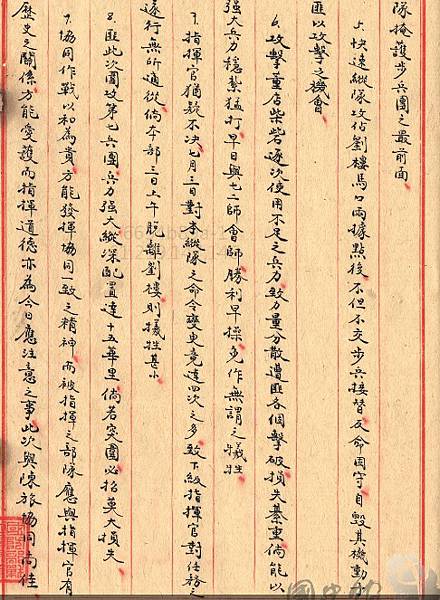 隊掩護步兵團之最前面
5.快速縱隊攻佔劉樓馬口兩據點後不但不交步兵接替反命固守自毀其機動力
匪以攻擊之機會
6.攻擊董店柴砦逐次使用不足之兵力致力量分散遭匪各個擊破損失綦重倘能以
強大兵力穩紮猛打早日與七二師會師勝利早操免作無謂之犧牲
7.指揮官猶豫不決七月三日對本縱隊之命令變更竟達四次之多致下級指揮官對任務之
遂行無所適從倘本部三日上午脫離劉樓則犧牲甚小
8.匪此次圍攻第七兵團兵力強大縱深配置達十五華里倘若突圍必招莫大損失
9.協同作戰以和為貴方能發揮協同一致之精神而被指揮之部隊應與指揮官有
歷史之關係方能愛護而指揮道德亦為今日應注意之事此次與陳旅協同尚佳